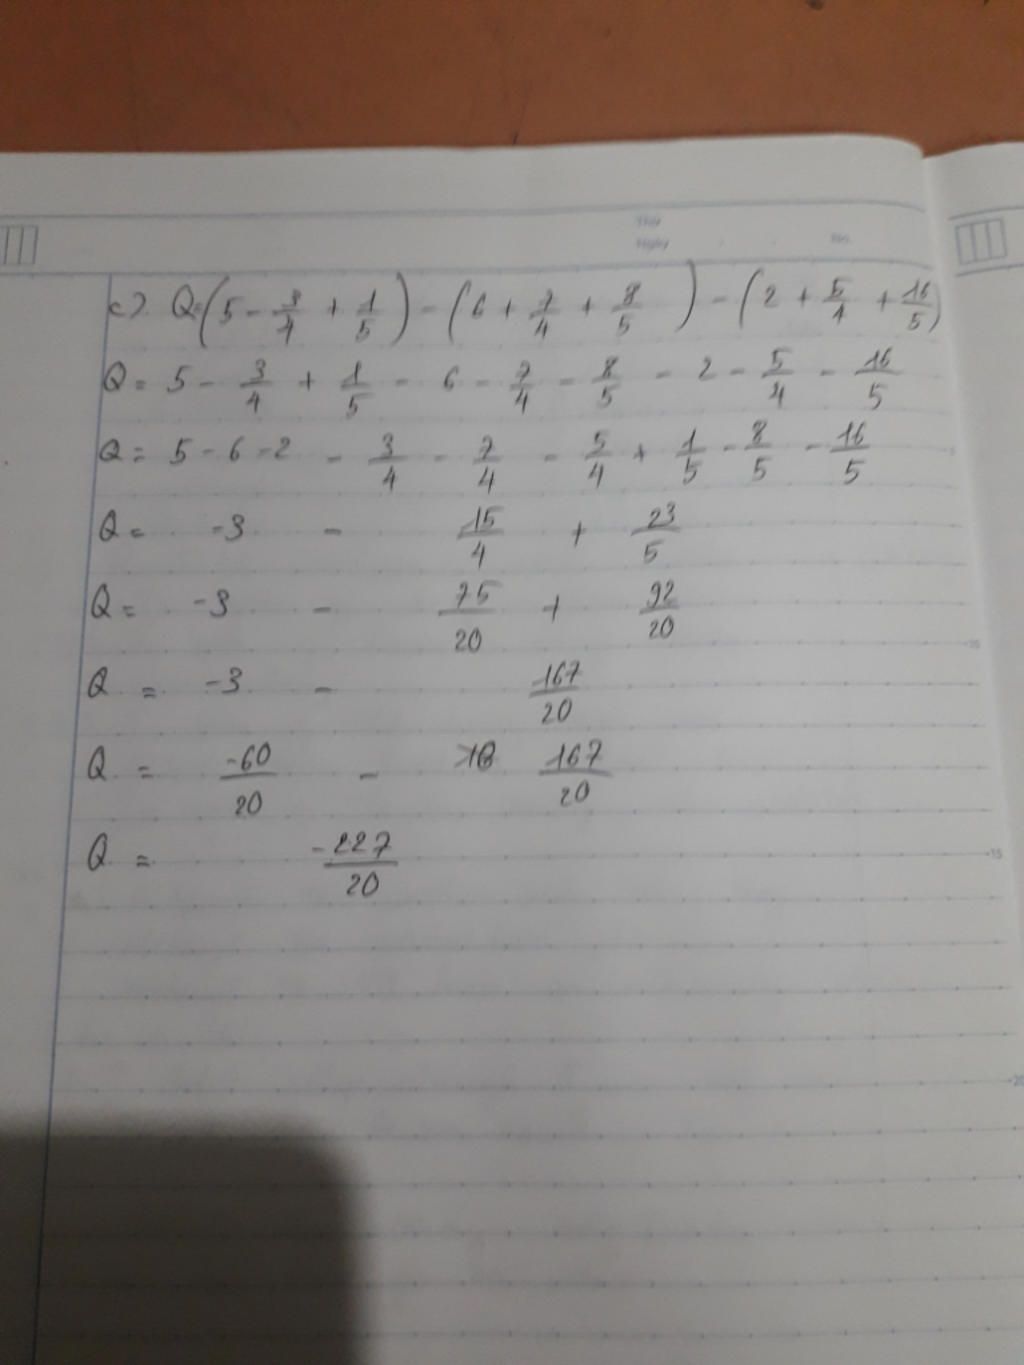 Thứ
Ngày No.
c) Q=(5 - 3/4 + 1/5) - (6 + 7/4 + 8/5) - (2 + 5/4 + 16/5)
Q = 5 - 3/4 + 1/5 - 6 - 7/4 - 8/5 - 2 - 5/4 - 16/5
Q = 5 - 6 - 2 - 3/4 - 7/4 - 5/4 + 1/5 - 8/5 - 16/5
Q = -3 - 15/4 + 23/5
Q = -3 - 75/20 + 92/20
Q = -3 - 167/20
Q = -60/20 - 167/20
Q = -227/20
15
20